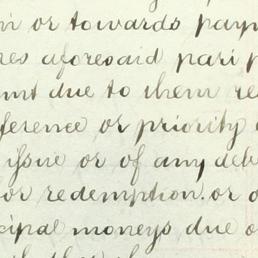 in or towards paym
res aforesaid pari p
unt due to them re
ference or priority
issue or of any deb
or redemption. or o
cipal moneys due o